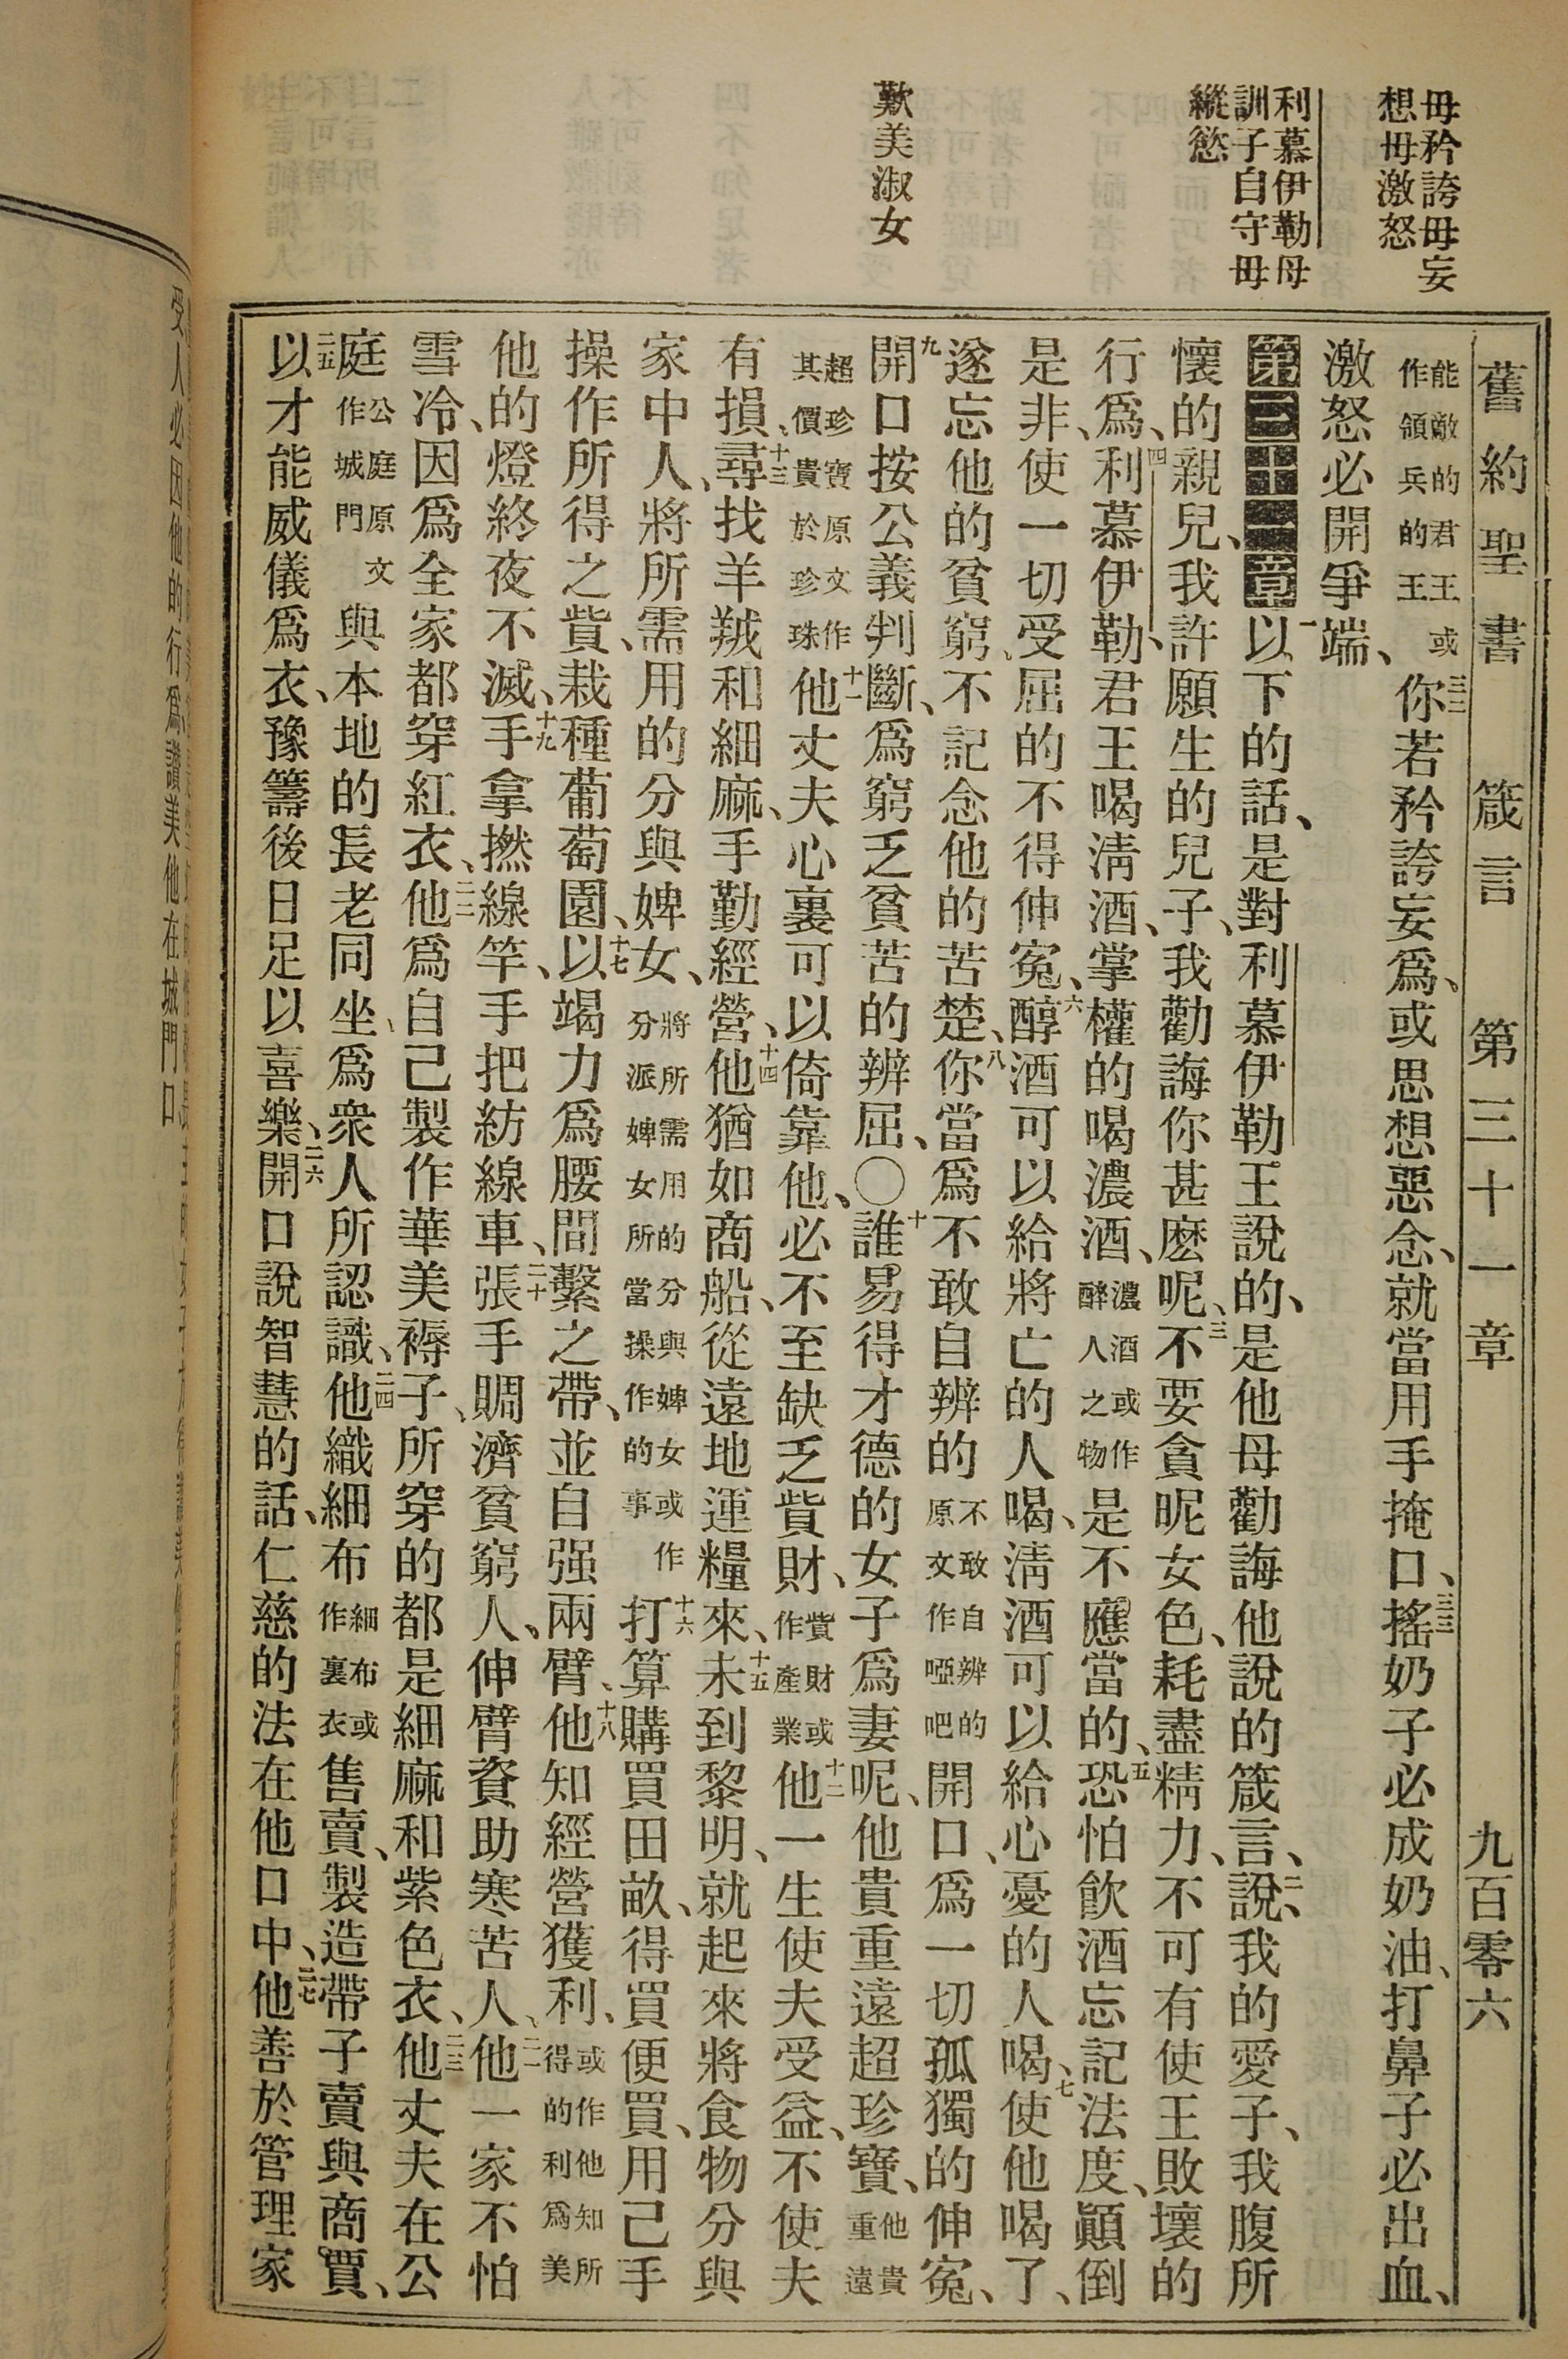 毋矜誇毋妄
想毋激怒
利慕伊勒母
訓子自守毋
縱慾
歎美淑女
舊約聖書 箴言 第三十一章 九百零六
能敵的君王或作領兵的王三二你若矜誇妄爲、或思想惡念、就當用手掩口、三三搖奶子必成奶油、打鼻子必出血、
激怒必開爭端、
第三十一章一以下的話、是對利慕伊勒王說的、是他母勸誨他說的箴言、二說、我的愛子、我腹所
懷的親兒、我許願生的兒子、我勸誨你甚麽呢、三不要貪昵女色、耗盡精力、不可有使王敗壞的
行爲、四利慕伊勒、君王喝淸酒、掌權的喝濃酒、濃酒或作醉人之物是不應當的、五恐怕飮酒忘記法度、顚倒
是非、使一切受屈的不得伸寃、六醇酒可以給將亡的人喝、淸酒可以給心憂的人喝、七使他喝了、
遂忘他的貧窮、不記念他的苦楚、八你當爲不敢自辨的不敢自辨的原文作啞吧開口、爲一切孤獨的伸寃、
九開口按公義判斷、爲窮乏貧苦的辨屈、〇十誰易得才德的女子爲妻呢、他貴重遠超珍寶、他貴重遠
超珍寶原文作其價貴於珍珠十一他丈夫心裏可以倚靠他、必不至缺乏貲財、貲財或作產業十二他一生使夫受益、不使夫
有損、十三尋找羊羢和細麻、手勤經營、十四他猶如商船、從遠地運糧來、十五未到黎明、就起來將食物分與
家中人、將所需用的分與婢女、將所需用的分與婢女或作分派婢女所當操作的事十六打算購買田畝、得買便買、用己手
操作所得之貲、栽種葡萄園、十七以竭力爲腰間繫之帶、並自强兩臂、十八他知經營獲利、或作他知所得的利爲美
他的燈終夜不滅、十九手拿撚線竿、手把紡線車、二十張手賙濟貧窮人、伸臂資助寒苦人、二一他一家不怕
雪冷、因爲全家都穿紅衣、二二他爲自己製作華美褥子、所穿的都是細麻和紫色衣、二三他丈夫在公
庭公庭原文作城門與本地的長老同坐、爲衆人所認識、二四他織細布細布或作裏衣售賣、製造帶子賣與商賈、
二五以才能威儀爲衣、豫籌後日足以喜樂、二六開口說智慧的話、仁慈的法在他口中、二七他善於管理家
受人必因他的行爲讚美他在城門口